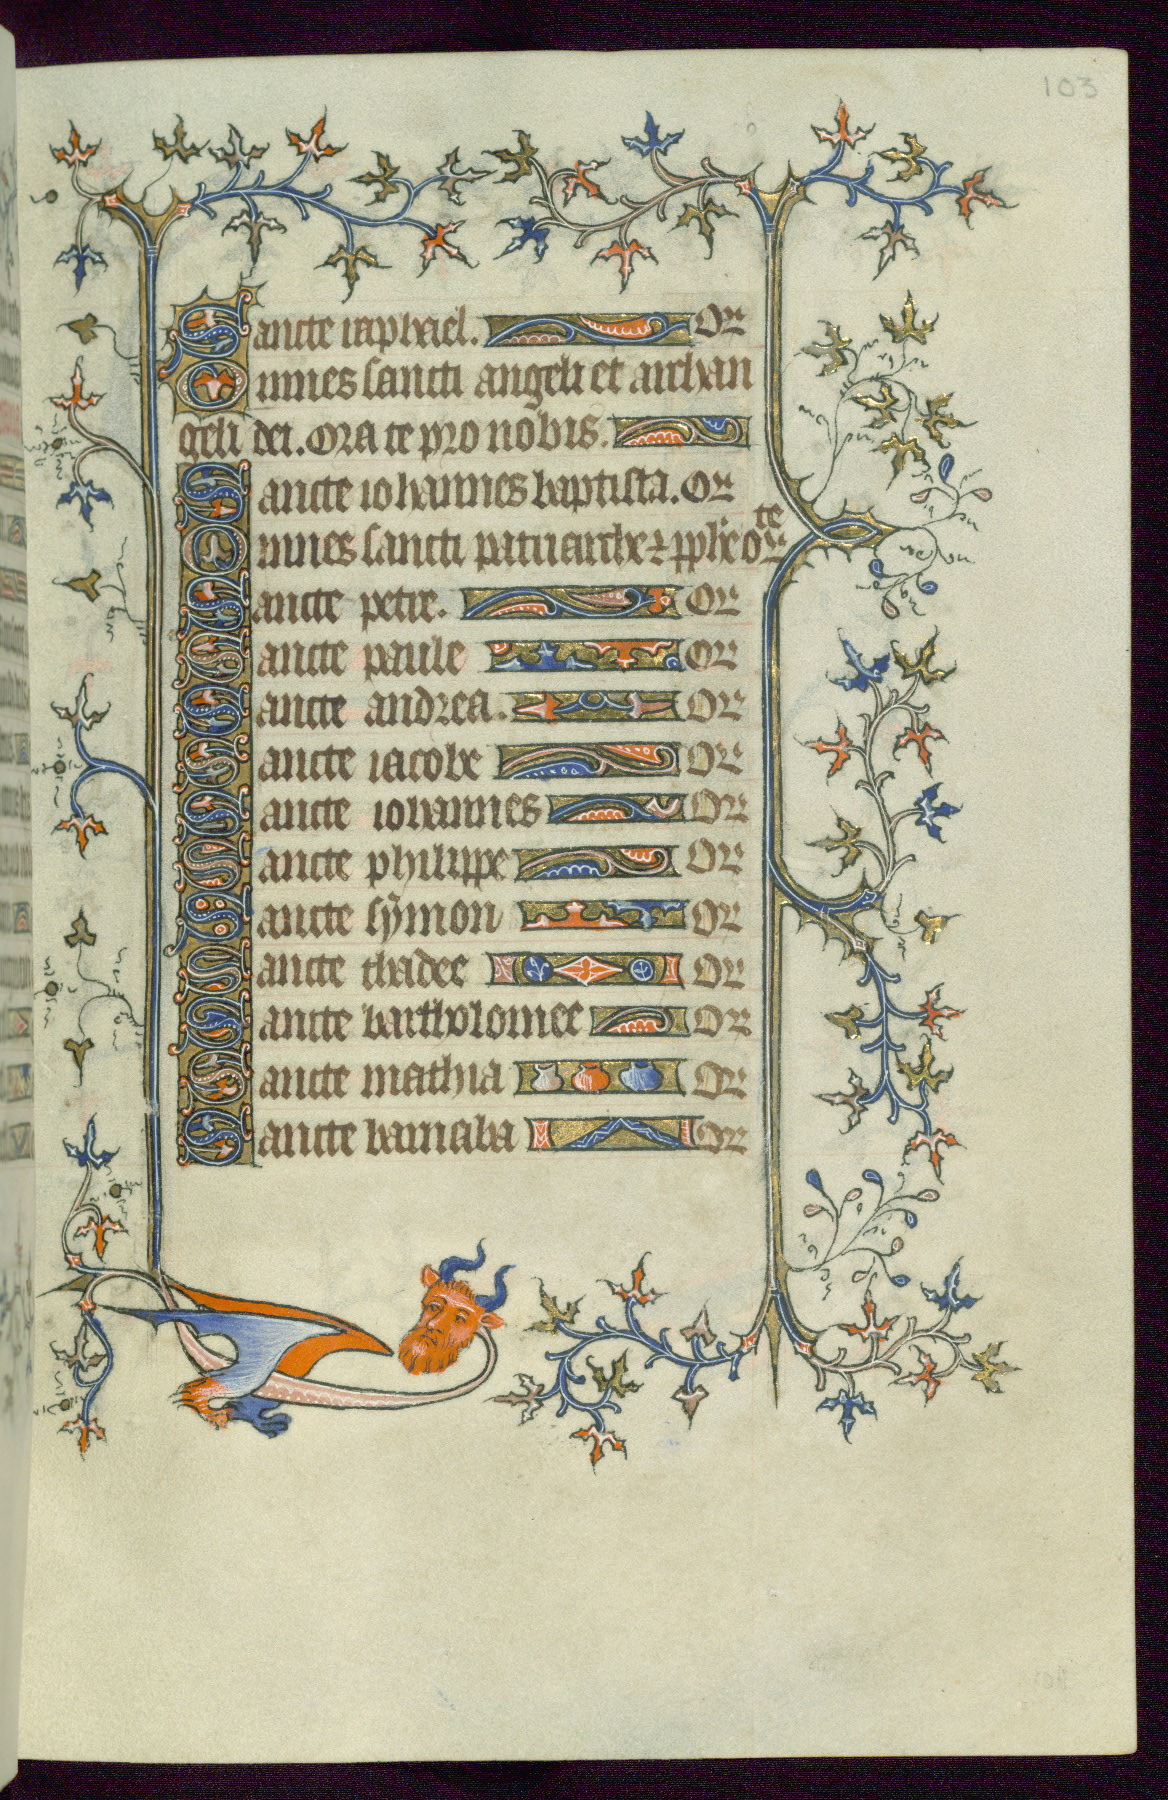 103
Sancte raphael. Or
Omnes sancti angeli et archan
geli dei. Ora te pro nobis.
Sancte iohannes baptista. Or
Omnes sancti patriarche ⁊ pphe orate
Sancte petre. Or
Sancte paule Or
Sancte andrea. Or
Sancte iacobe Or
Sancte iohannes Or
Sancte philippe Or
Sancte symon Or
Sancte thadee Or
Sancte bartholomee Or
Sancte mathia Or
Sancte barnaba Or